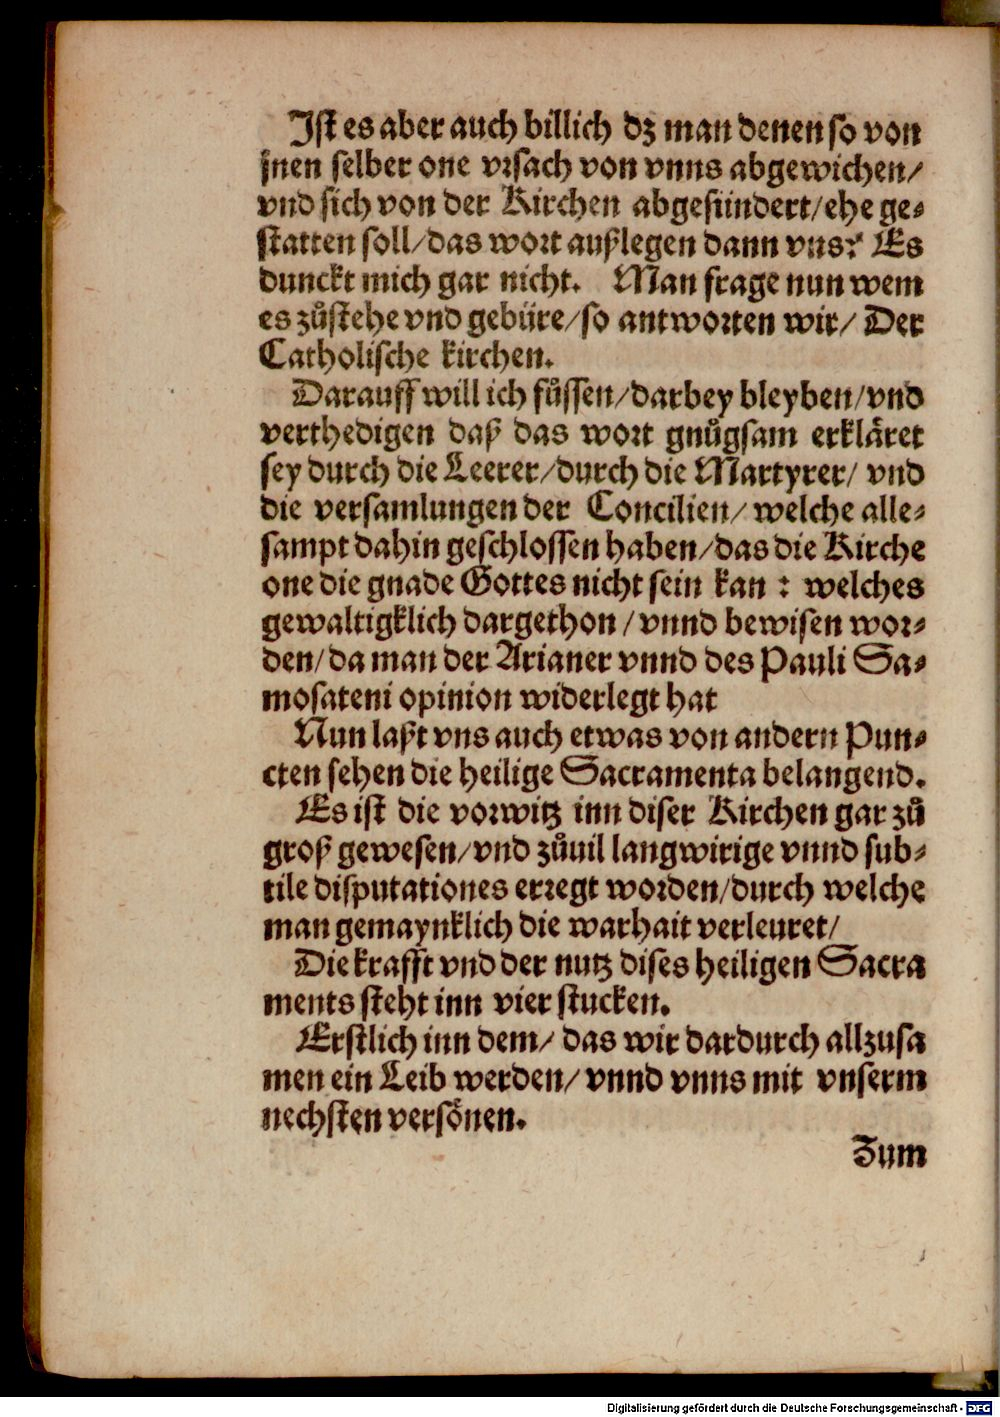 Ist es aber auch billich dz man denen so von
jnen selber one vrsach von vnns abgewichen/
vnd sich von der Kirchen abgesündert/ehe ge-
statten soll/das wort außlegen dann vns? Es
dunckt mich gar nicht. Man frage nun wem
es zůstehe vnd gebüre/so antworten wir/ Der
Catholische kirchen.
Darauff will ich fůssen/darbey bleyben/vnd
verthedigen daß das wort gnůgsam erkläret
sey durch die Leerer/durch die Martyrer/ vnd
die versamlungen der Concilien/ welche alle-
sampt dahin geschlossen haben/das die Kirche
one die gnade Gottes nicht sein kan : welches
gewaltigklich dargethon /vnnd bewisen wor-
den/da man der Arianer vnnd des Pauli Sa-
mosateni opinion widerlegt hat
Nun laßt vns auch etwas von andern Pun-
cten sehen die heilige Sacramenta belangend.
Es ist die vorwitz inn diser Kirchen gar zů
groß gewesen/vnd zůuil langwirige vnnd sub-
tile disputationes erregt worden/durch welche
man gemaynklich die warhait verleuret/
Die krafft vnd der nutz dises heiligen Sacra
ments steht inn vier stucken.
Erstlich inn dem/ das wir dardurch allzusa
men ein Leib werden/ vnnd vnns mit vnserm
nechsten versönen.
Zum
Digitalisierung gefördert durch die Deutsche Forschungsgemeinschaft - DFG